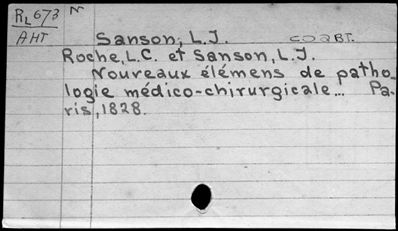 RL673 N
AHT Sanson, L.J.
Roche, L.C. et Sanson, L.J.
Nouveaux élémens de patho-
logie médico-chirurgicale... Pa-
ris, 1828.